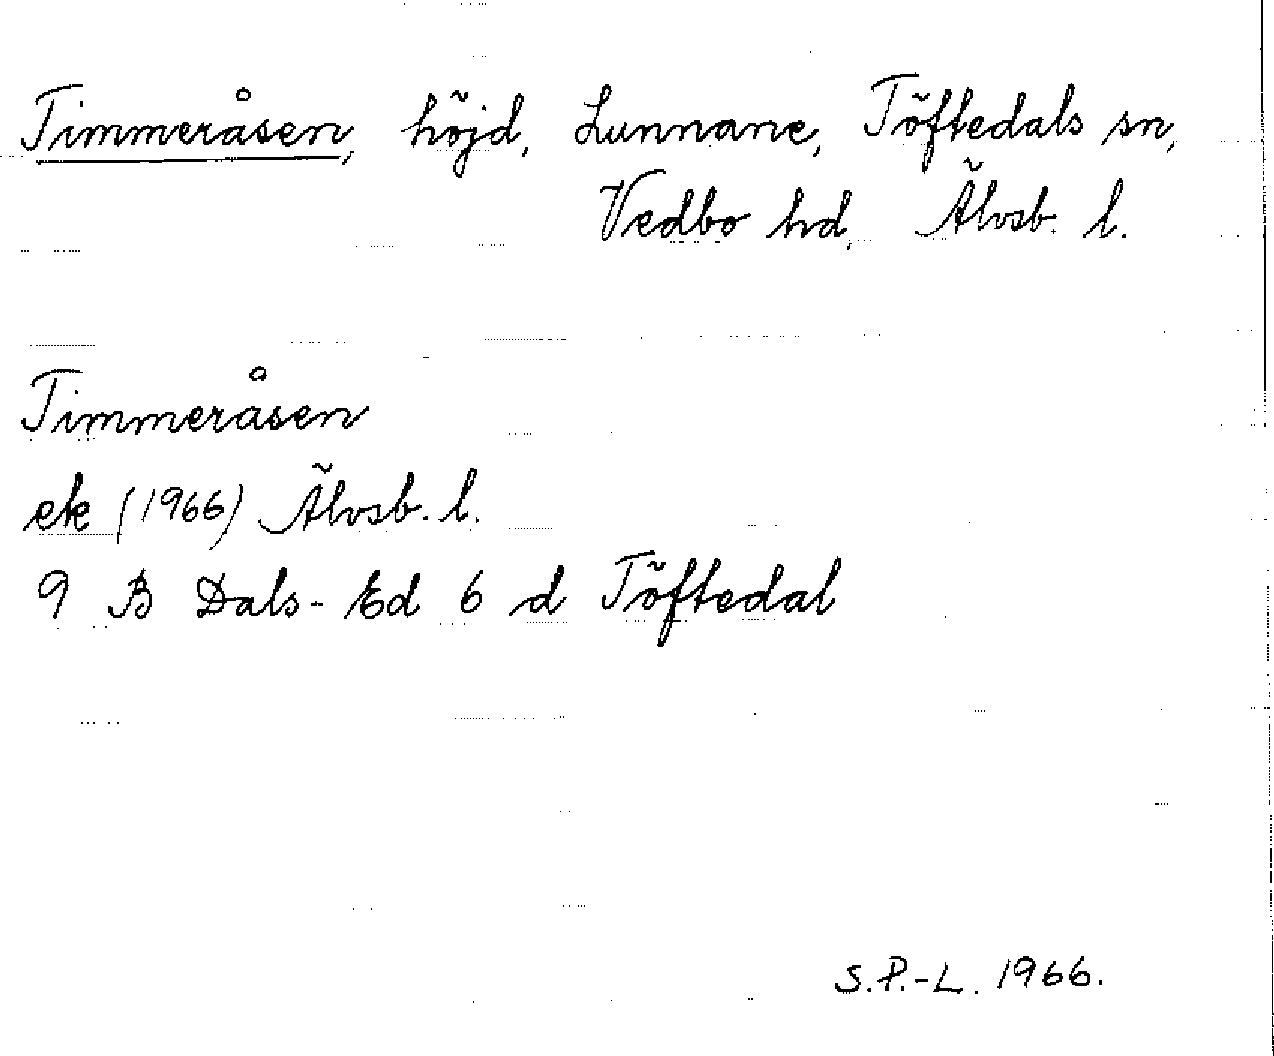 Timmeråsen, höjd, Lunnane, Töftedals sn,
Vedbo hd, Älvsb. l.
Timmeråsen
ek (1966) Älvsb. l.
9 B Dals-Ed 6 d Töftedal
S.P.-L. 1966.